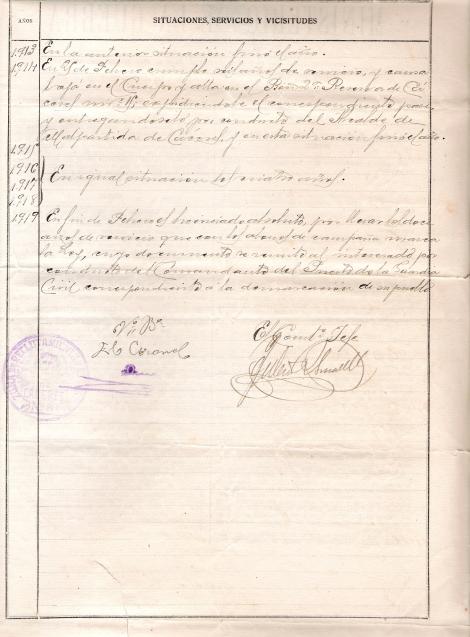 AÑOS SITUACIONES, SERVICIOS Y VICISITUDES
1913 En la anterior situación finó el año.
1914 En 25 de Febrero cumplió seis años de servicio, y causa
baja en el Cuerpo y alta en el Bón 2ª Reserva de Cá-
ceres nº expidiendosele el correspondiente pase
y entregandoselo por conducto del Alcalde de
Malpartida de Cáceres, y en esta situación finó el año.
1915
1916
1917 En igual situación los cuatro años.
1918
1919 En fin de Febrero el licenciado absoluto, por llevar los doce
años de servicio que con los abonos de campaña marca
la Ley, cuyo documento se remite al interesado por
conducto del Comandante del Puesto de la Guardia
Civil correspondiente a la demarcación de su pueblo
Vº Bº
El Coronel
El Comtº Jefe